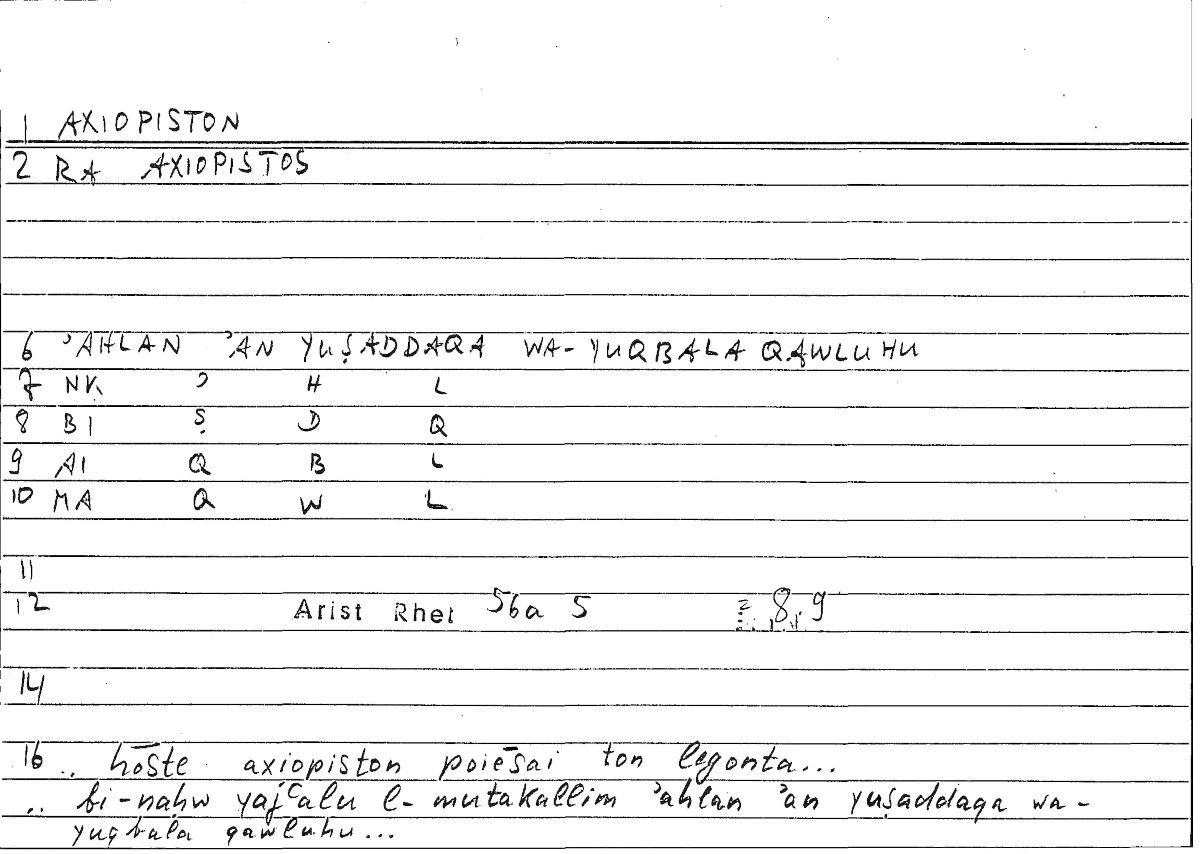 1 AXIOPISTON
2 RA AXIOPISTOS
6 ʾAHLAN ʾAN YUṢADDAQA WA-YUQBALA QAWLUHU
7 NK ʾ H L
8 BI Ṣ D Q
9 AI Q B L
10 MA Q W L
11
12 Arist Rhet 56a 5 8,9
14
16 .. hōste axiopiston poiēsai ton legonta...
.. bi-naḥw yajʿalu l-mutakallim ʾahlan ʾan yuṣaddaqa wa-
yuqbala qawluhu...